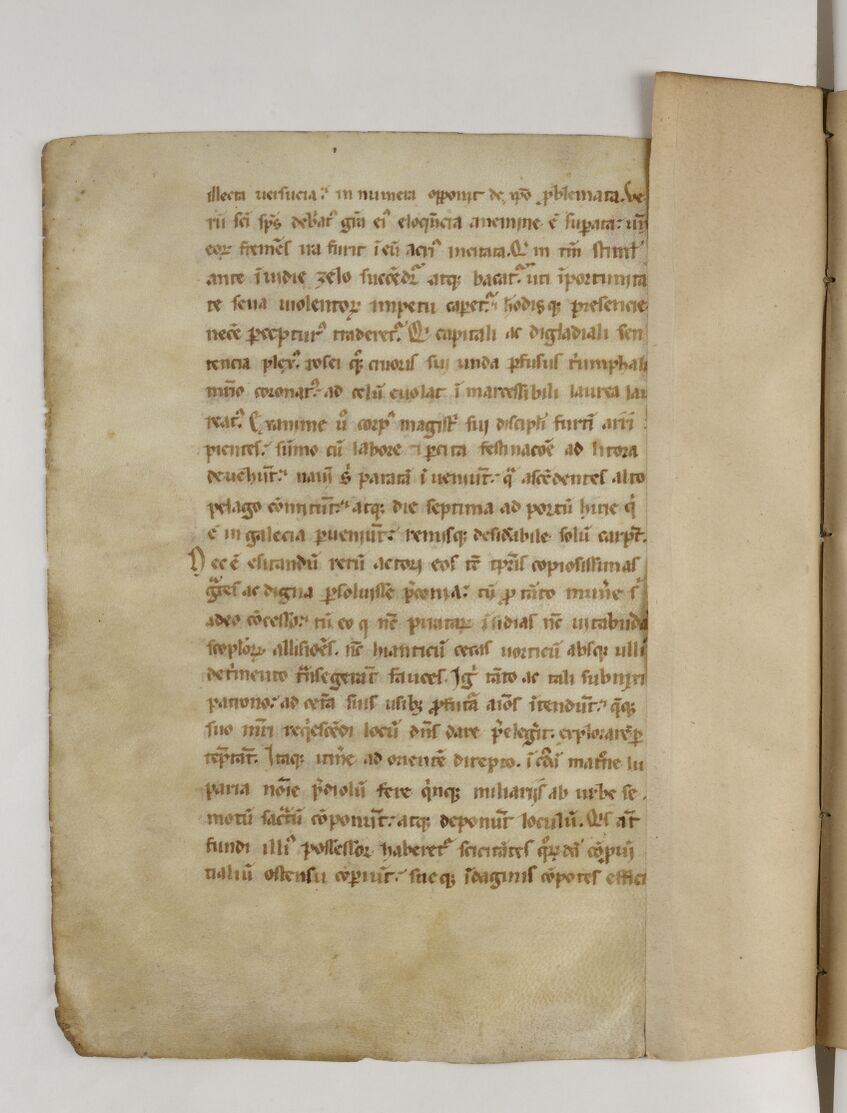 illecta uersucia.᾿ in numera opponit de xp̄o ꝓblemata. Ve
rū sc̄i sp̄s deb̄at᾿ gr̄a ei᾿ eloqn̄cia anemine ē suꝑata: un̄
eoꝝ fremēs ira furit ī eū acri᾿ incitata. Q̄ in tm̄ stiml᾿
ante īuidie zelo succēdr̄ atq; bacat᾿. uti īportunita
te seua uiolentoꝝ impetu caꝑet᾿. hodisq; presencie
necē ꝑceptur᾿ traderet᾿. Q̄ capitali ac digladiali sen
tencia plex᾿. rosei q̄ cruoris sui unda ꝑfusus tͥumphali
mr̄io coronat᾿. ad celū euolat ī marcessibili laurea lau
reat᾿. Exanime u᾿ corp᾿ magistͥ sui discipli furtī arri
pientes.᾿ sūmo cū labore ⁊ ꝑcita festinacōe ad litora
deuehūt.᾿ nauī s᾿ paratā ī ueniūt.᾿ q̄ ascēdentes alto
pelago cōmittūt.᾿ atq; die septima ad portū hirie q̄
ē in galecia ꝑueniūt.᾿ remisq; desid᾿abile solū carpūt.
Nec ē esitandū rerū actori eos tē tp̄ris copiosissimas
gr̄ates ac digna ꝑsoluisse p̄conia.᾿ tū ꝓ tāto mun᾿e s᾿
adeo cōcesso.᾿ tū eo q nc̄ pirataꝝ īsidias nc̄ uitabunda
scoploꝝ allisiōes. nc̄ hianticū cecas uorticū absq; ulli᾿
detͥmento trāsegerāt fauces. Igͥ tāto ac tali subnixi
patrono.᾿ ad cet᾿a suis usibꝫ ꝓfuta aīos ītendūt.᾿ q̄q;
suo mr̄i req̄escēdi locū dn̄s dare p̄elegͥt. explorare ꝑ
teptāt. Itaq; itin᾿e ad orientē direpto. ī sc̄ā matͥne lu
paria noīe p̄diolū fere qͥnq; miliarijs ab urbe se
motū sacrū cōponūt.᾿ atq; deponūt loculū. Q̄s at̄
fundi illi᾿ possessor haberet᾿ scicitātes qͦꝝdā cōprū
tialiū ostensu cōpiūt.᾿ sueq; īdaginis cōpotes effici